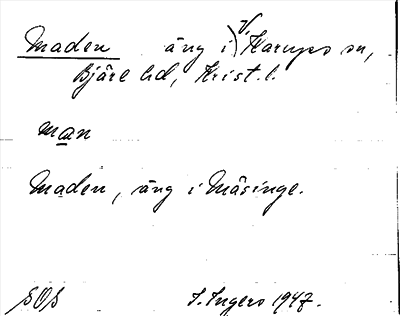 Maden äng i V. Karups sn,
Bjäre hd, Krist. l.
man
Maden, äng i Mäsinge.
SOS I. Ingers 1947.